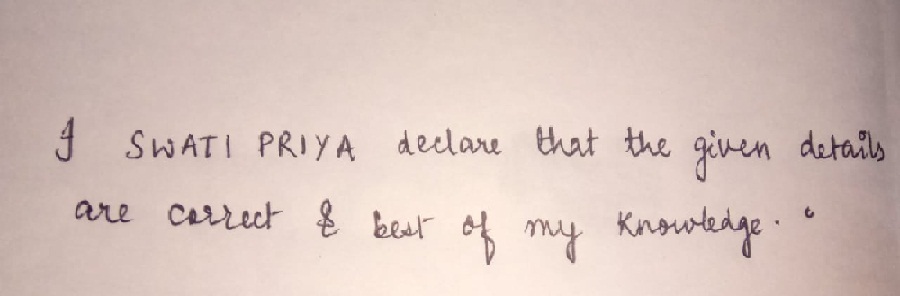 I SWATI PRIYA declare that the given details
are correct & best of my knowledge.